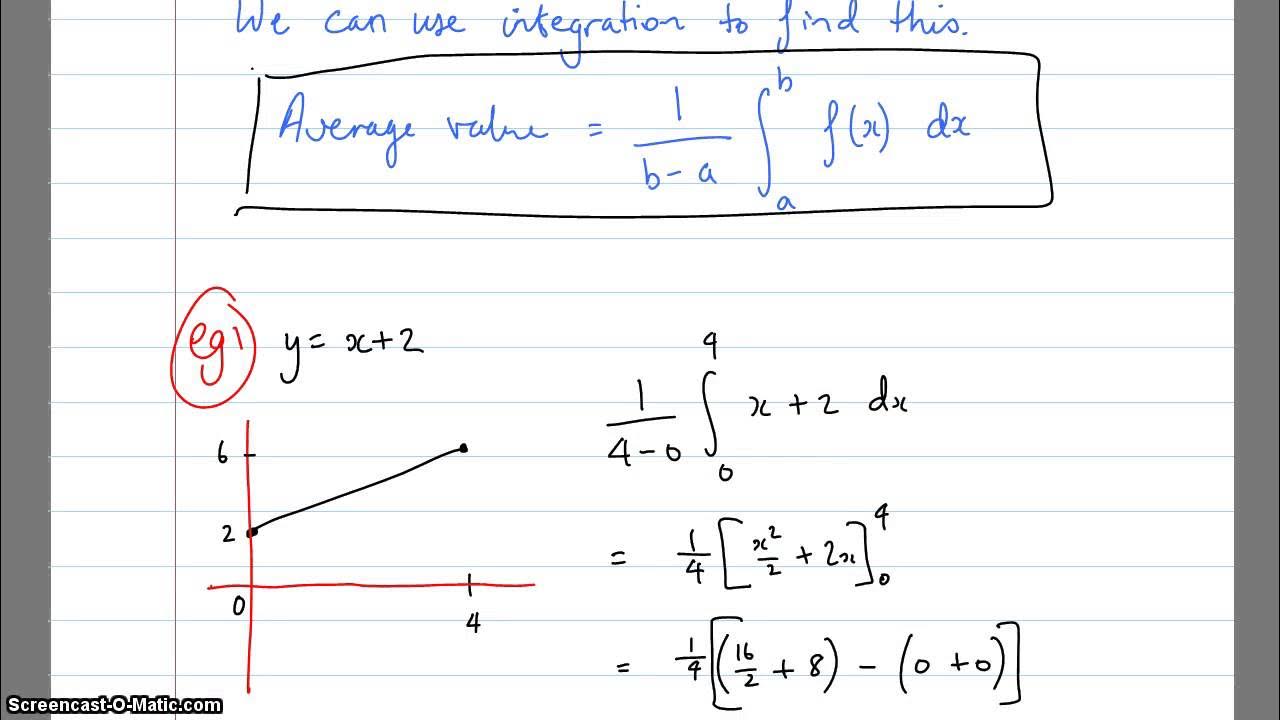 We can use integration to find this.
Average value = 1/(b-a) ∫_a^b f(x) dx
eg1 y = x+2
1/(4-0) ∫_0^4 x + 2 dx
6
2
0
4
= 1/4 [x²/2 + 2x]_0^4
= 1/4 [(16/2 + 8) - (0 + 0)]
Screencast-O-Matic.com